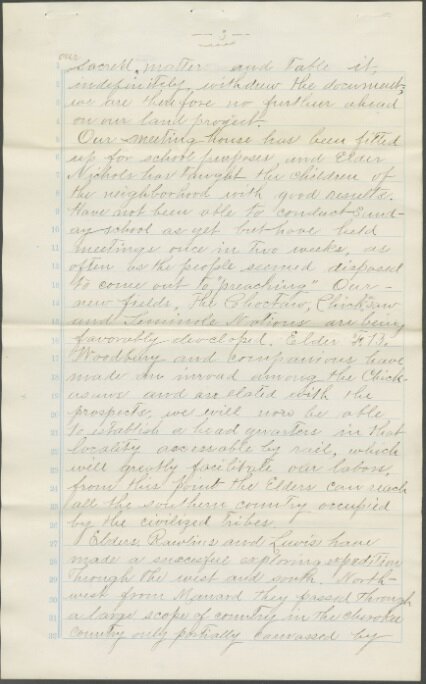 - 3 -
our
sacred matter and table it,
indefinitely withdrew the document,
we are therefore no further ahead
on our land project.
Our meeting house has been fitted
up for school purposes and Elder
Nichols has taught the children of
the neighborhood with good results.
Have not been able to conduct Sund-
ay school as yet but have held
meetings once in two weeks, as
often as the people seemed disposed
to come out to "preaching" Our
new fields, the Choctaw, Chicksaw
and Siminole Nations are being
favorably developed. Elder
Woodbury and companions have
made an inroad among the Chick-
asaws and are elated with the
prospects, we will now be able
to establish a head quarters in that
locality accessable by rail, which
will greatly facilitate our labors,
from this point the Elders can reach
all the southern country occupied
by the civilized tribes.
Elders Rawlins and Lewis have
made a successful exploring expedition
through the west and south. North-
west from Manard they passed through
a large scope of country in the Cherokee
country only partially canvassed by